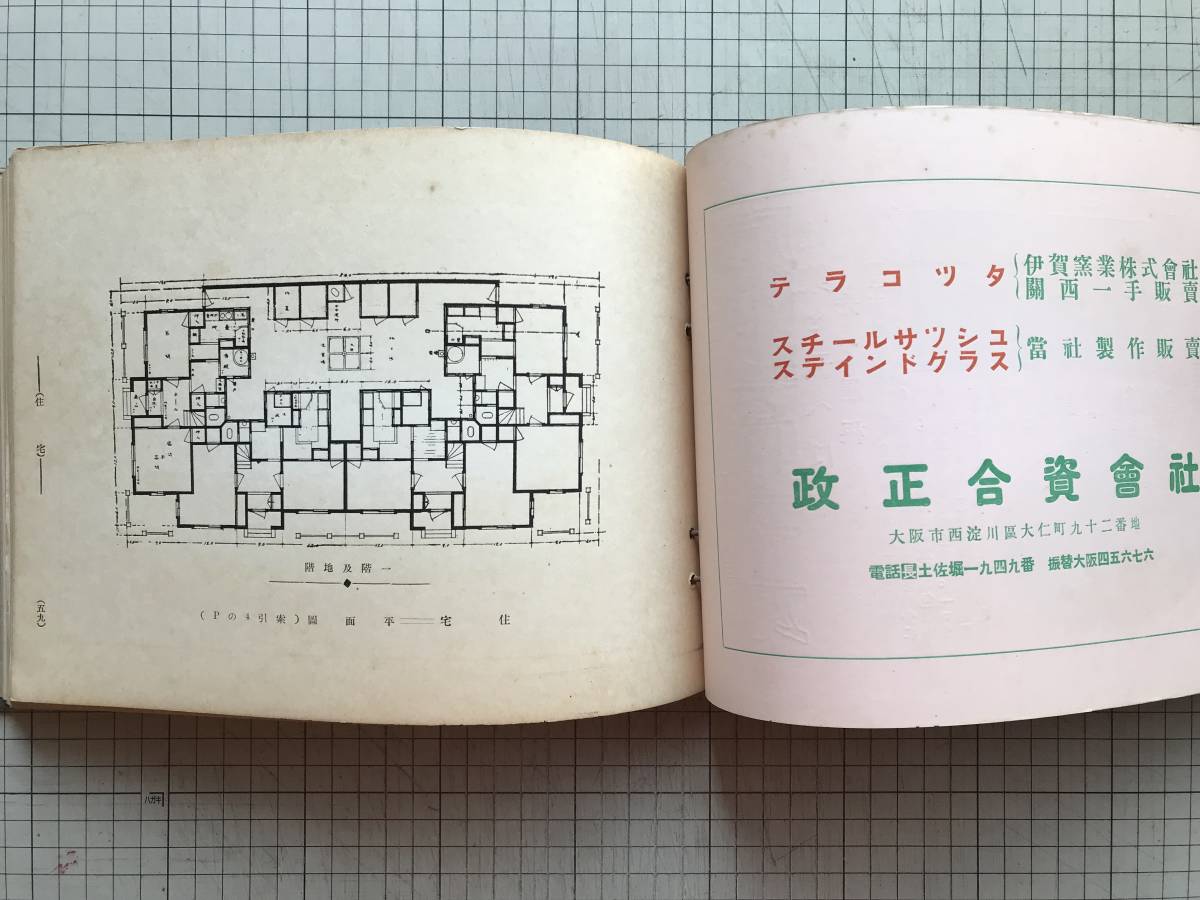 (住宅)
(五九)
階地及階一
(Pの4引索)圖面平══宅住
テラコツタ
伊賀窯業株式會社
關西一手販賣
スチールサツシユ
ステインドグラス
當社製作販賣
政正合資會社
大阪市西淀川區大仁町九十二番地
電話長土佐堀一九四九番 振替大阪四五六七六
ハガキ